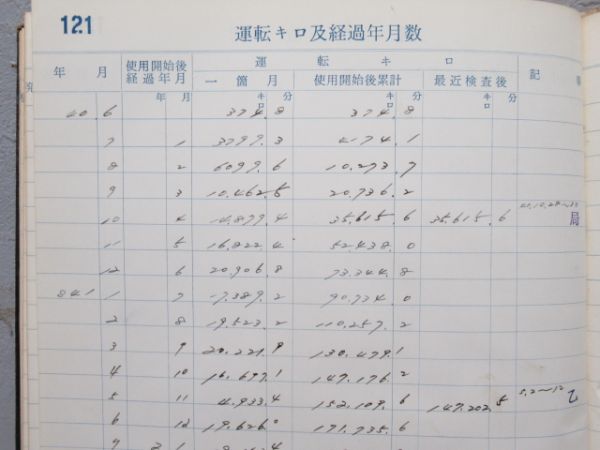 121
運転キロ及経過年月数
年 月 使用開始後経過年月 運 転 キ ロ 記 事
一 箇 月 使用開始後累計 最近検査後
年 月 キロ 分 キロ 分 キロ 分
40 6 374.8 374.8
7 1 3799.3 4174.1
8 2 6099.6 10.273.7
9 3 10.462.5 20.736.2
10 4 14.879.4 35.615.6 35.615.6 局
11 5 16.822.4 52.438.0
12 6 20.906.8 73.344.8
41 1 7 17.389.2 90.734.0
2 8 19.523.2 110.257.2
3 9 20.221.9 130.479.1
4 10 16.697.1 147.176.2
5 11 4.933.4 152.109.6 147.202.5 5.2〜12 乙
6 12 19.626.0 171.735.6